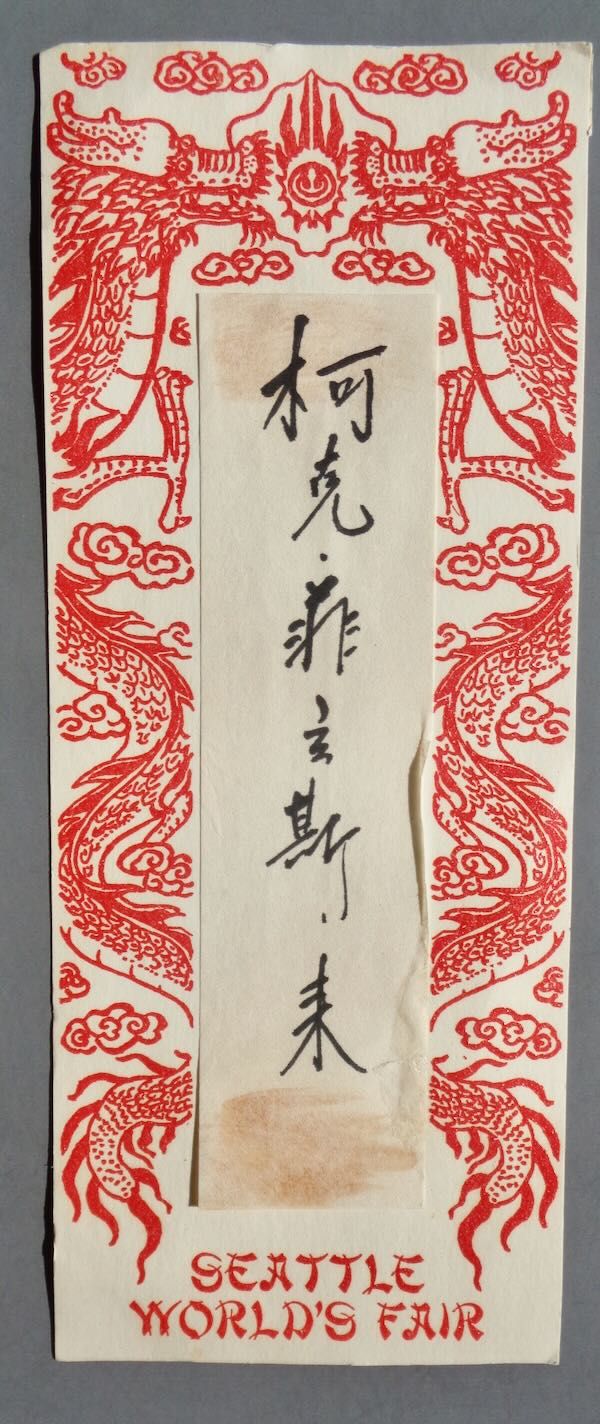 柯克·菲立斯·来
SEATTLE
WORLD'S FAIR